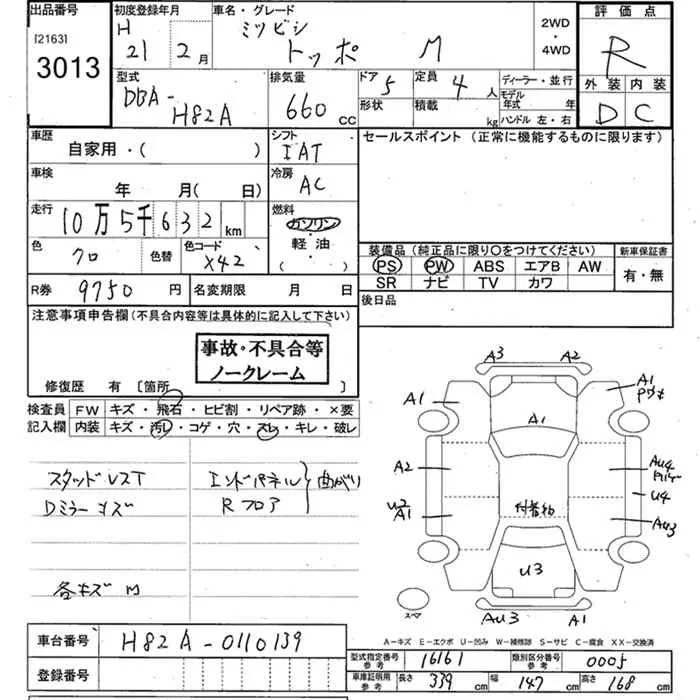 出品番号 初度登録年月 車名・グレード 評価点
[2163] H ミツビシ 2WD
3013 21 2月 トッポ M ・4WD R
型式 排気量 ドア 5 定員 4人 ディーラー・並行 外装 内装
DBA-H82A 660cc 形状 積載 kg モデル年式 年 D C
ハンドル 左・右
車歴 シフト セールスポイント (正常に機能するものに限ります)
自家用・( ) IAT
車検 冷房
年 月( 日) AC
走行 燃料
10万5千632km ガソリン・軽油
( )
色 クロ 色替 色コード X42
装備品 (純正品に限り○をつけてください) 新車保証書
PS PW ABS エアB AW 有・無
SR ナビ TV カワ
R券 9750円 名変期限 月 日 後日品
注意事項申告欄(不具合内容等は具体的に記入して下さい)
事故・不具合等
ノークレーム
修復歴 有 [箇所 ]
検査員 FW キズ・飛石・ヒビ割・リペア跡・×要
記入欄 内装 キズ・汚レ・コゲ・穴・スレ・キレ・破レ
スタッドレスT エンドパネル 曲がり
Dミラーキズ Rフロア
各キズ M
A3 A2
A1 A1 A1
A2 AU4
U2 A1 付着物 U4
AU3
U3
スペア AU3 A1
A-キズ E-エクボ U-凹み W-補修跡 S-サビ C-腐食 XX-交換済
車台番号 H82A-0110139
型式指定番号 参考 16161 類別区分番号 参考 0005
登録番号
車庫証明用 参考 長さ 339cm 幅 147cm 高さ 168cm